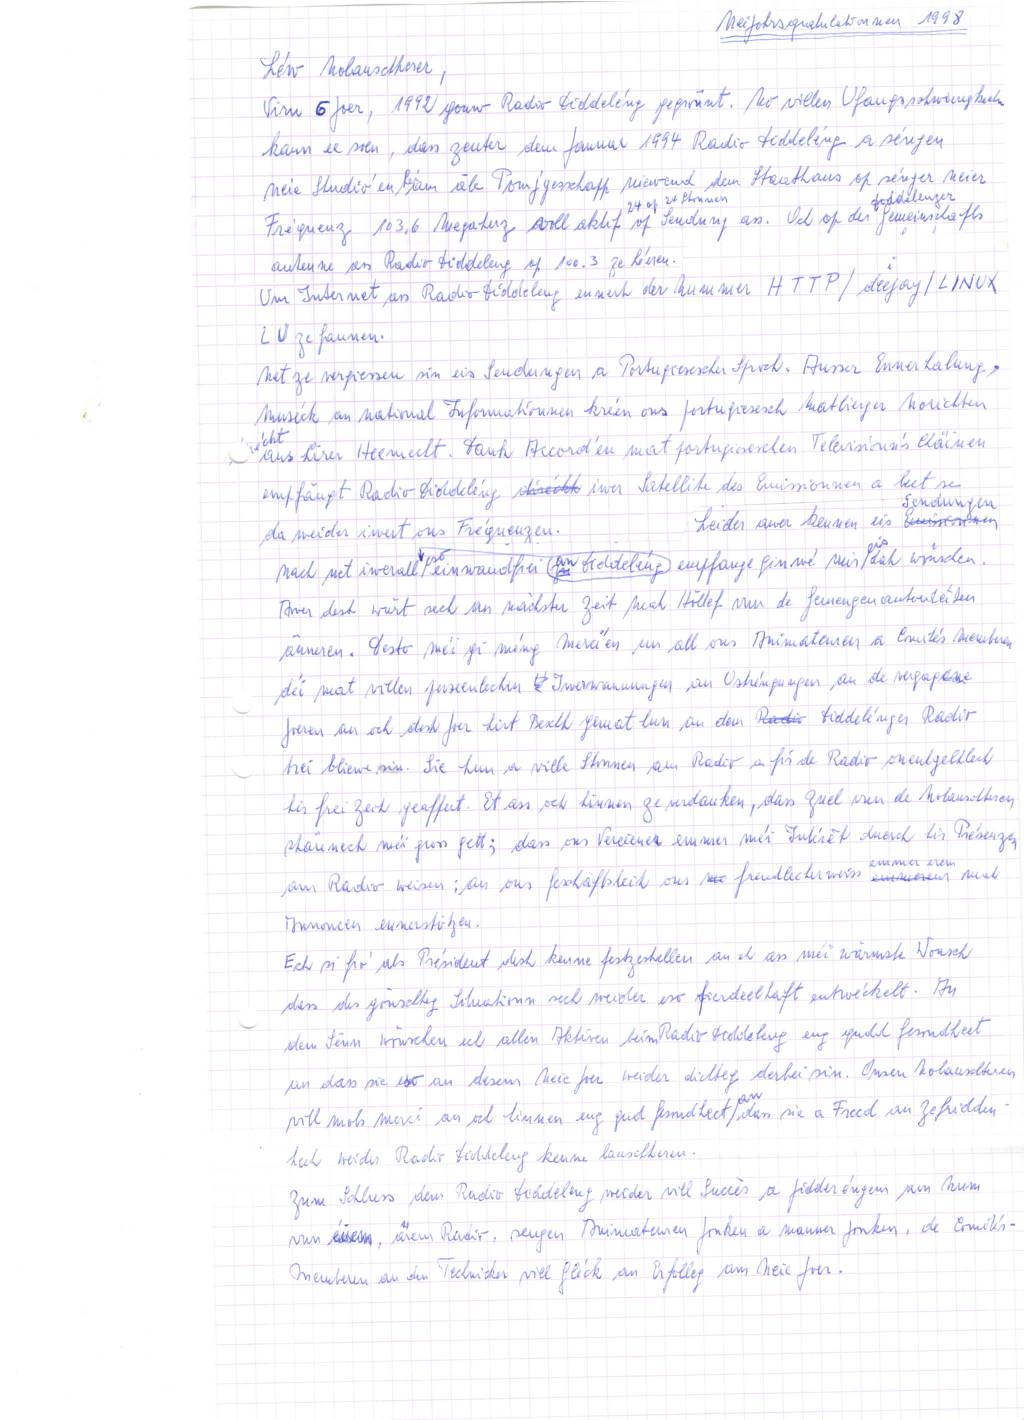 Neijohrsgratulatiounen 1998
Léiw Nolauschterer,
Virun 6 Joer, 1992 gouw Radio Diddeléng gegrönt. No villen Ufangsschwiregkeeten
kann ee soen, dass zenter dem Januar 1994 Radio Diddeléng a séngen
neie Studio'en am ale Pomjeesschapp niewend dem Staathaus op sénger neier
Frequenz 103,6 Megaherz voll aktif 24 op 24 Stonnen op Sendung ass. Och op der Diddelenger Gemeinschafts
antenne ass Radio Diddeleng op 100.3 ze héieren.
Um Internet ass Radio Diddeleng ennert der Nummer HTTP/deejay/LINUX
LU ze fannen.
Net ze vergiessen sin eis Sendungen a Portugiesescher Sproch. Ausser Ennerhalung,
Museck an national Informatiounen kréien ons portugiesesch Matbierger Norichten
direkt aus hirer Heemecht. Dank Accord'en mat portugiseschen Televisioun's Chaînen
empfängt Radio Diddeléng direkt iwer Satellite des Emissiounen a leet se
da weider iwert ons Frequenzen. Leider awer kennen eis Sendungen Emissiounen
nach net iwerall eso einwandfrei an Diddeléng empfange ginn wéi mir eis dat wönschen.
Awer dest wärt sech an nächster Zeit mat Höllef vun de Gemengenautoritéiten
änneren. Desto méi gi méng Merci'en un all ons Animateuren a Comités Memberen
déi mat villen perséinlechen Iwerwannungen an Ustréngungen an de vergaangene
Joeren an och dest Joer hirt Bescht gemat hun an dem Radio Diddelénger Radio
trei bliewe sin. Sie hun a ville Stonnen am Radio a fir de Radio onentgeltlech
hir frei Zeit geaffert. Et ass och hinnen ze verdanken, dass Zuel vun de Nolauschteren
stänneg méi gross gett; dass ons Vereiner emmer méi Intérêt duerch hir Présenzen
am Radio weisen; an ons Geschäftsleit ons frendlecherweis emmer erem mat
Annoncen ennerstötzen.
Ech si fro' als Président dest kenne festzestellen an et ass méi wärmste Wonsch
dass des gönschteg Situatioun sech weider eso fierdeelhaft entweckelt. An
dem Sënn wönschen ech allen Aktiven beim Radio Diddeleng eng gudd Gesondheet
an dass sie eso an desem Neie Joer weider dichteg derbei sin. Onsen Nolauschteren
vill mols merci an och hinnen eng gud Gesondheet, an dass sie a Freed an Zefridden-
heet weider Radio Diddeleng kenne lauschteren.
Zum Schluss dem Radio Diddeleng weider vill Succès a fidderängem am Num
vun eisem, ärem Radio, sengen Animateuren jonken a manner jonken, de Comités-
Memberen an den Techniker vill Gléck an Erfolleg am Neie Joer.